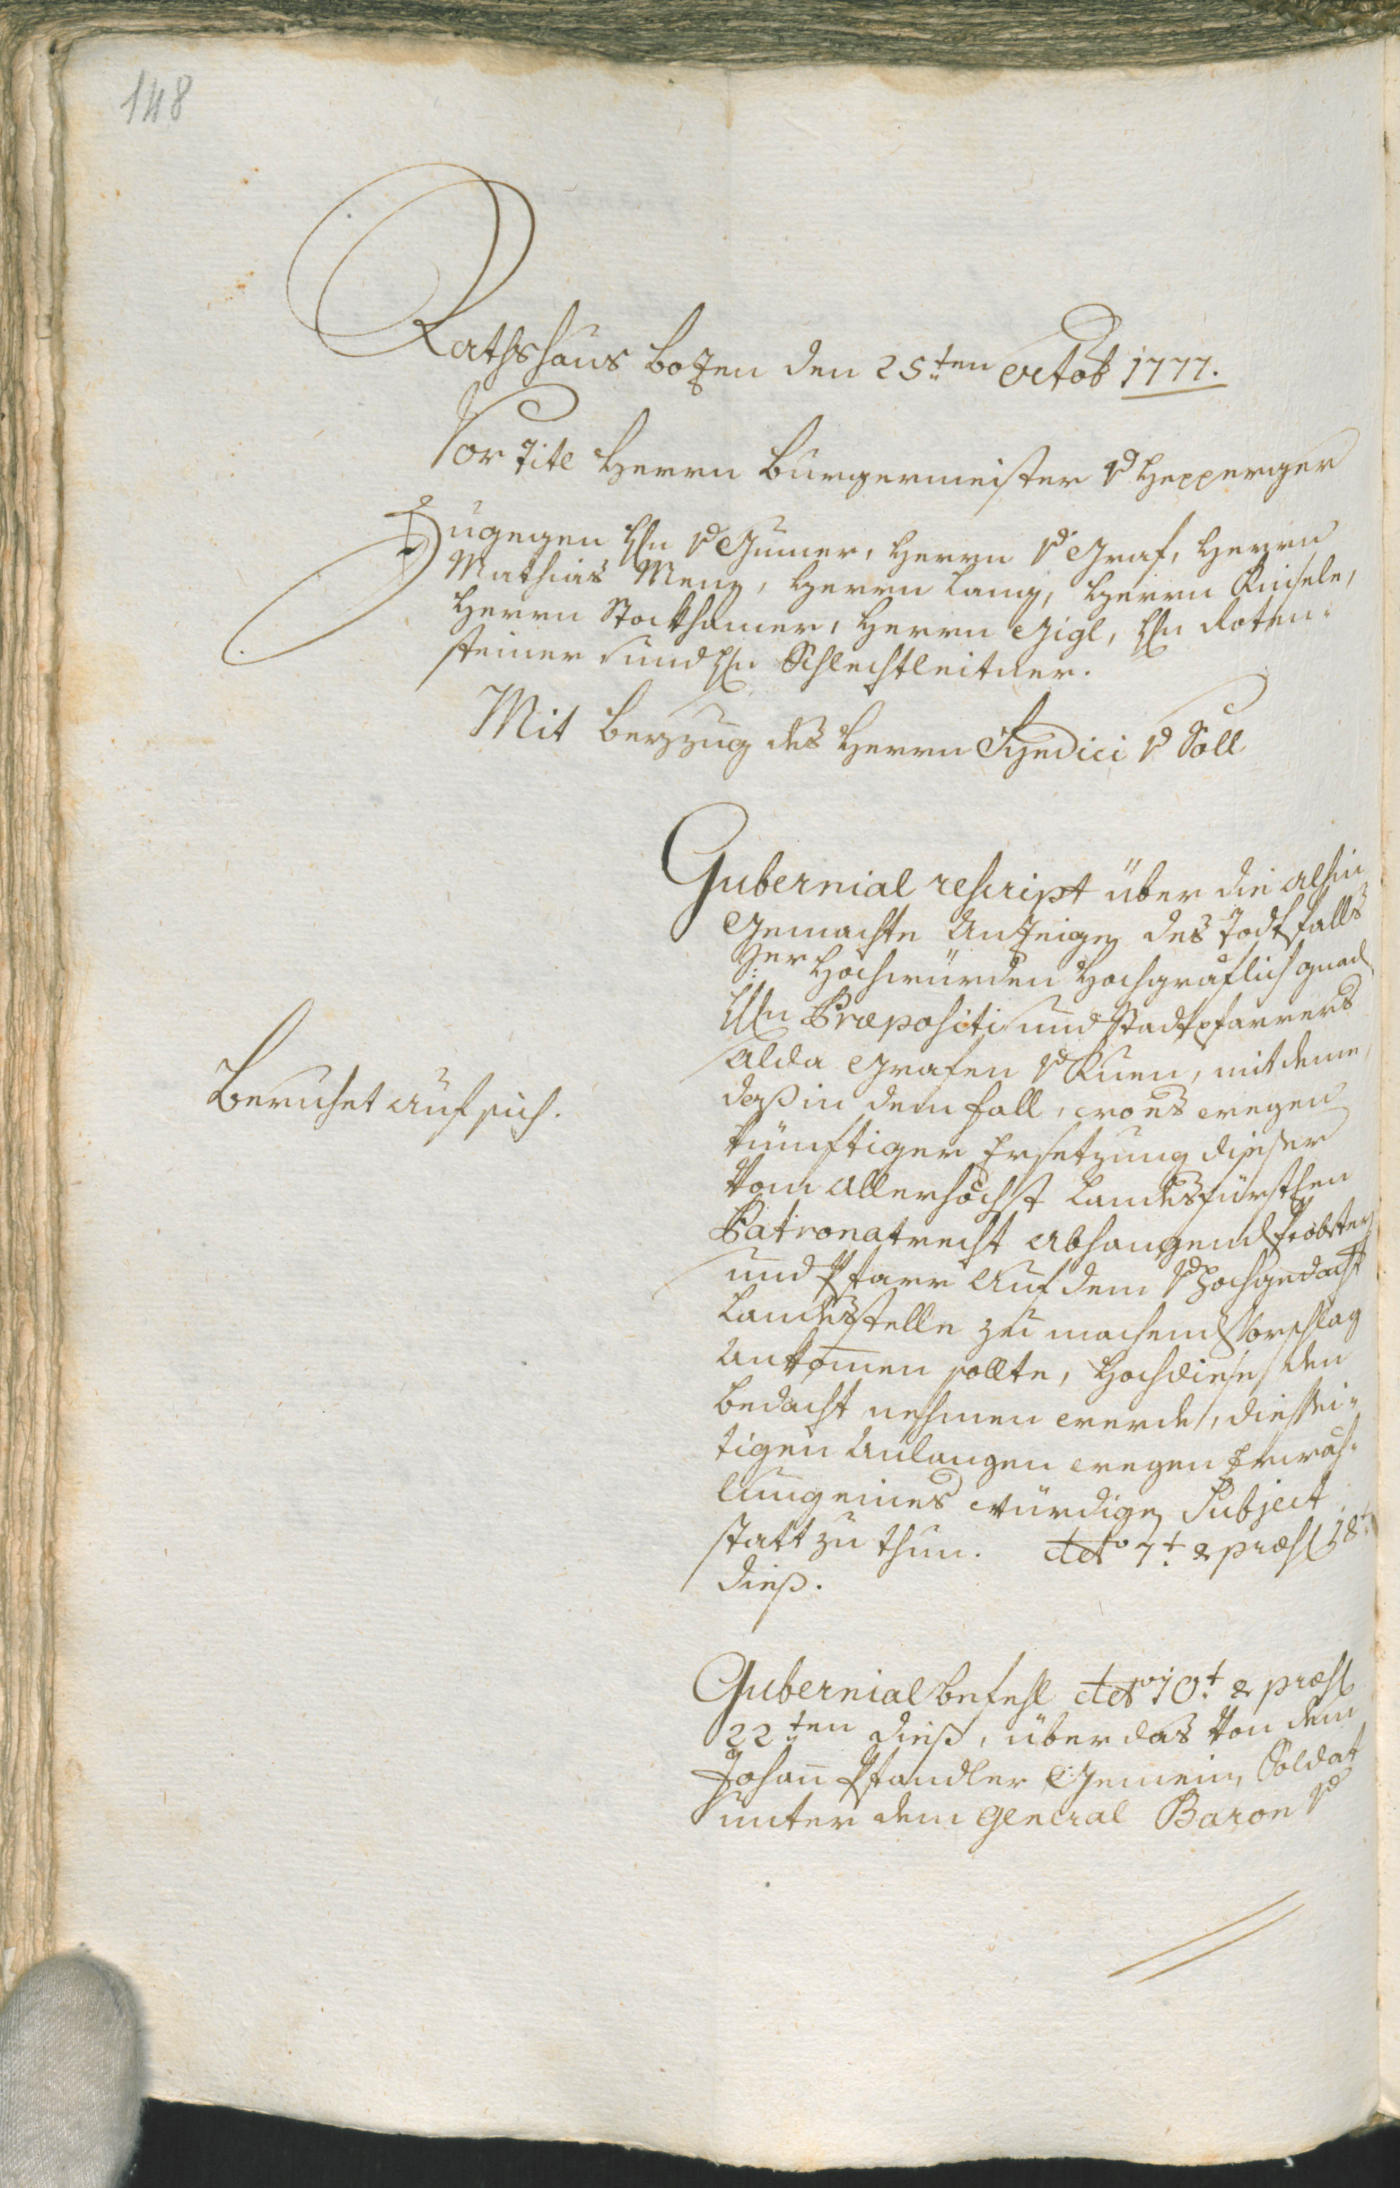 148
Rathshaus Bozen den 25.ten Octob 1777.
Vor Titl Herrn Burgermeister v Hepperger
Zugegen H: v Gumer, Herrn v Graf, Herrn
Mathias Menz, Herrn Lang, Herrn Kinsele,
Herrn Stockhamer, Herrn Gigl, H: Roten¬
steiner und H: Schlechtleitner.
Mit Beyzug des Herrn Syndici v Söll
Gubernial rescript über die alhin
gemachte Anzeige des Todtfalls
Sr: Hochwürden Hochgräflich gnad
H: Præpositi und Stadtpfarrers
Alda Grafen v Kuen, mit deme,
daß in dem fall, wo es wegen
künftiger Ersetzung dieser
Vom Allerhöchst Landesfürsthen
Patronatrecht abhangend Probstey
und Pfarr auf dem v Hochgedacht
Landesstelle zu machend Vorschlag
Ankomen sollte, Hochdiese den
bedacht nehmen werde, diessei¬
tigen Anlangen wegen Erwäh¬
lung eines würdigen Subject
statt zu thun. dto 7.t & præs 18t
dieß.
Beruhet auf sich.
Gubernial befehl dto 10.t & præs
22.ten dieß, über das Von dem
Johann Pfandler Gemein Soldat
unter dem General Baron v